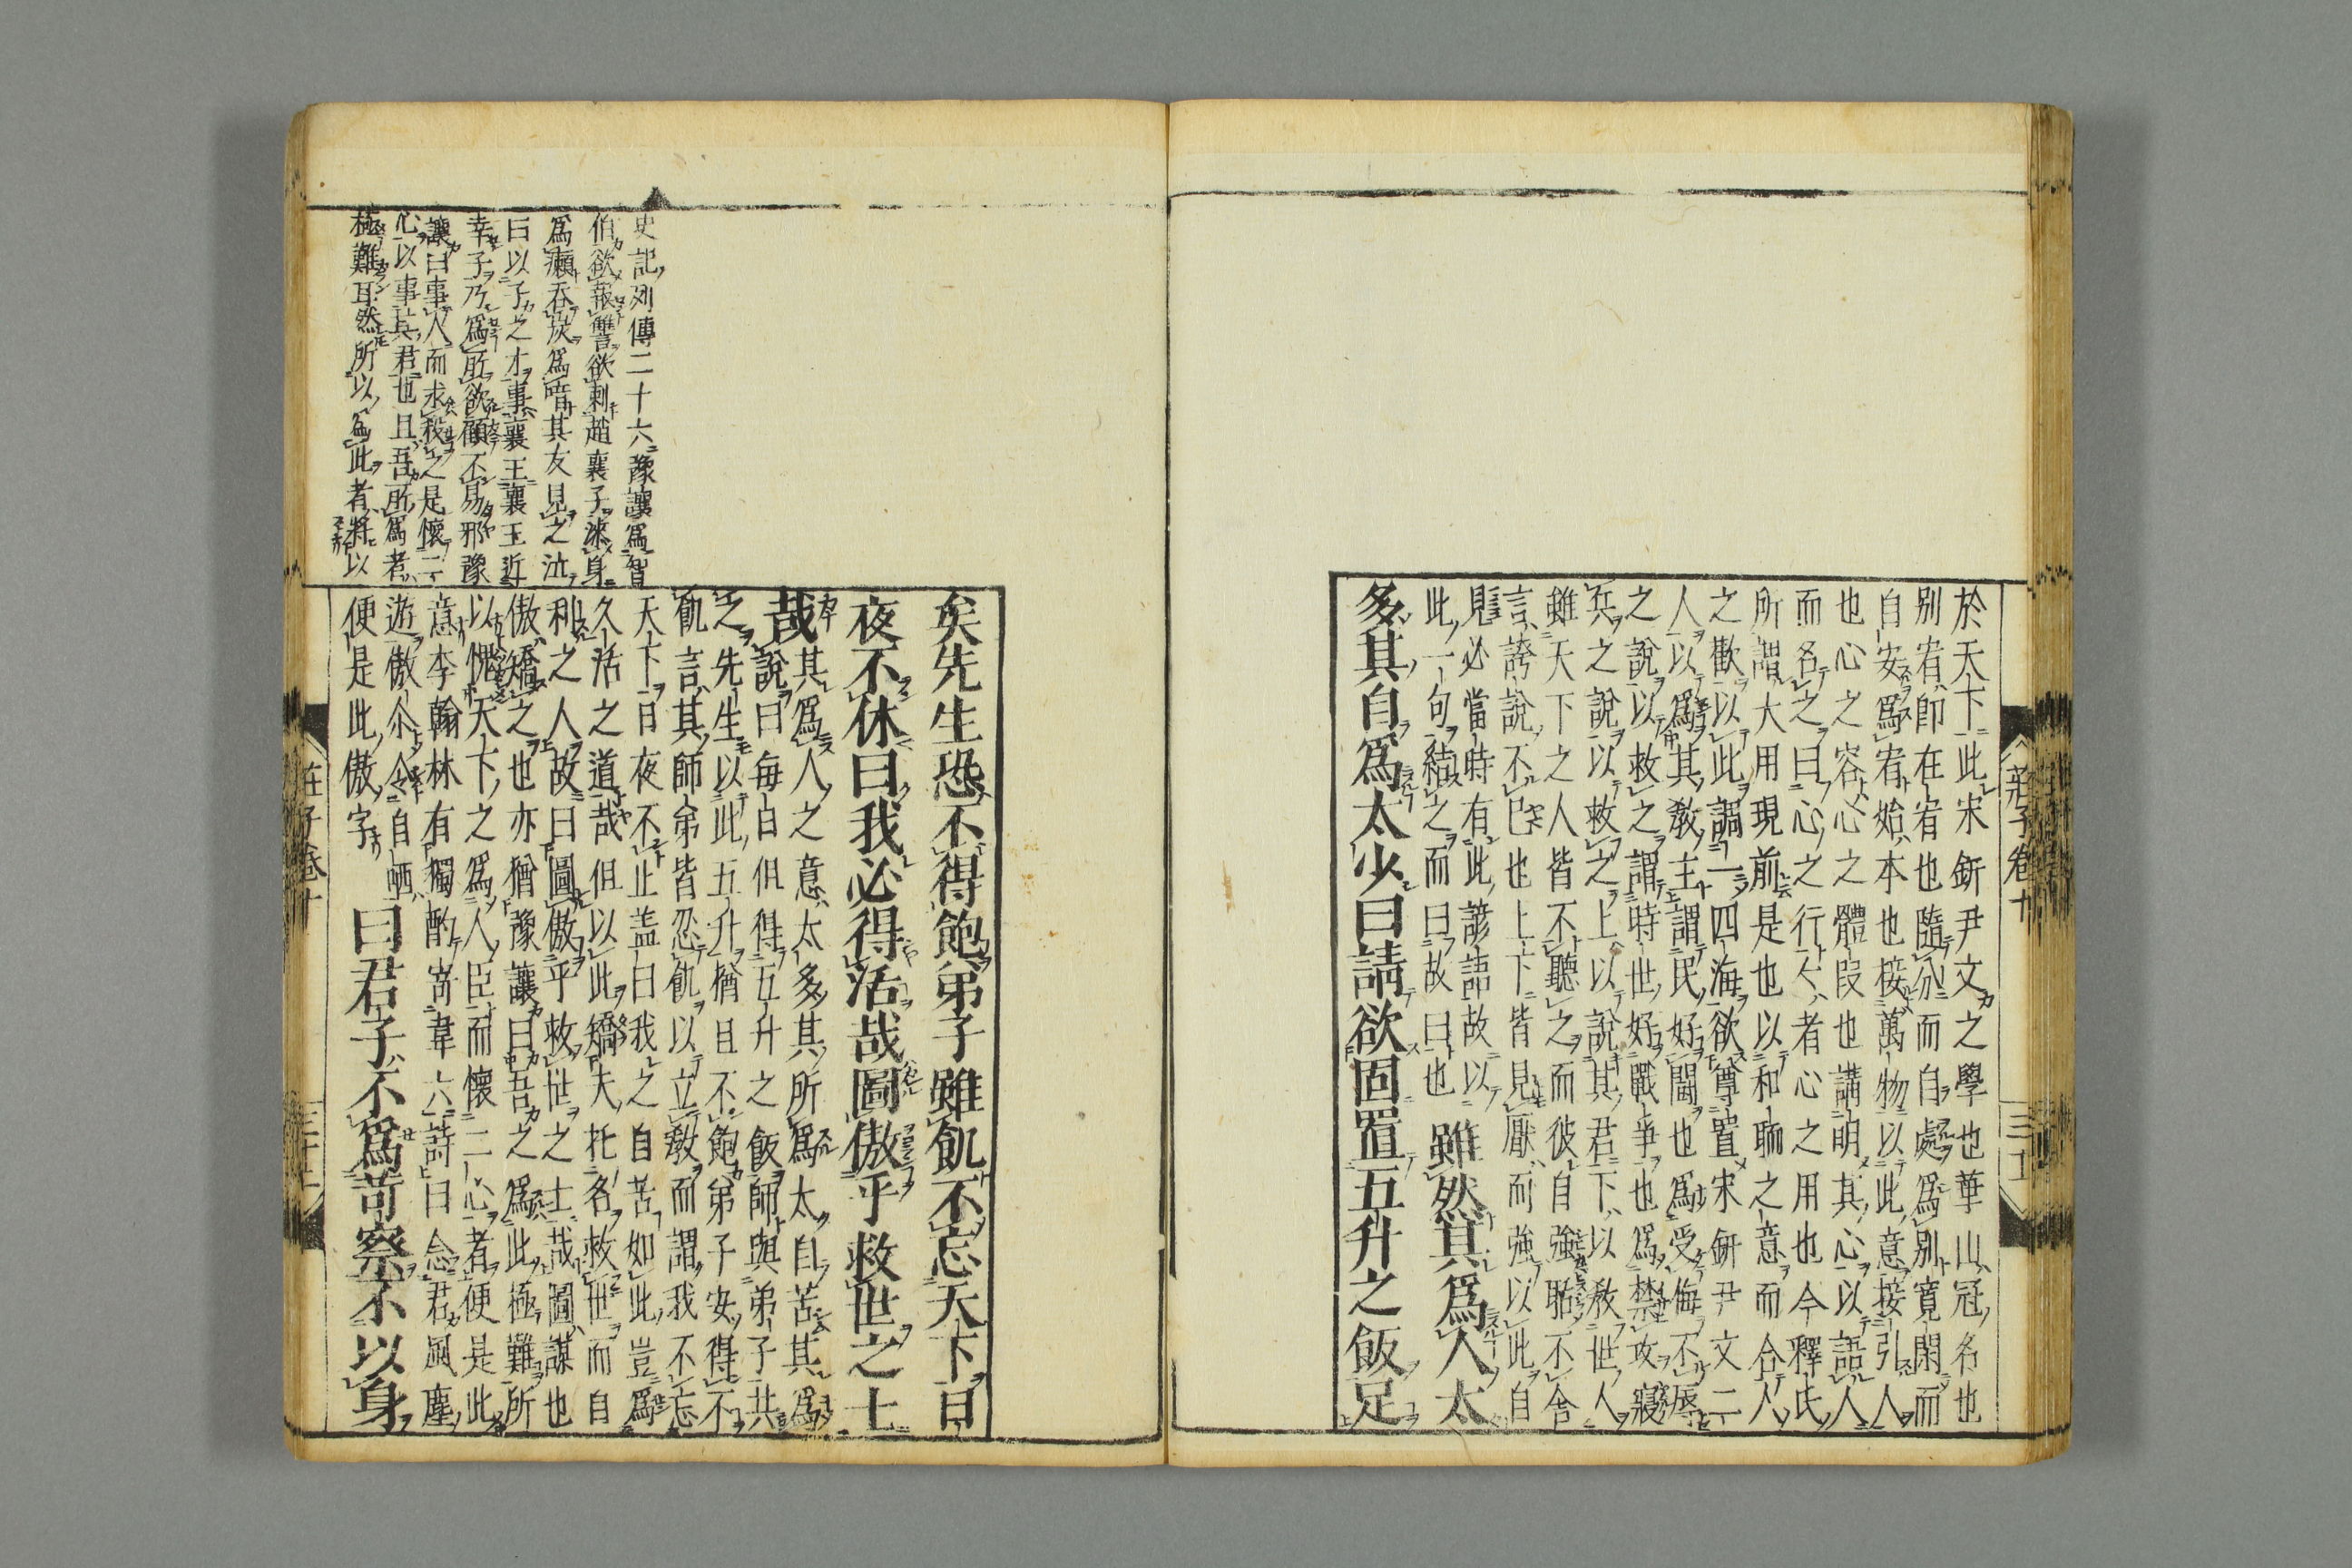 莊子卷十
於天下此宋鈃尹文之學也華山冠名也
别宥即在宥也隨分而自處爲别寛閑而
自安爲宥始本也接萬物以此意接引人
也心之容心之體叚也講明其心以語人
而名之曰心之行行者心之用也今釋氏
所謂大用現前是也以和聏之意而合人
之歡以此調一四海欲尊置宋鈃尹文二
人以爲其敎主謂民好鬪也爲受侮不辱
之說以救之謂時世好戰爭也爲禁攻寢
兵之說以救之上以說其君下以敎世人
雖天下之人皆不聽之而彼自強聒不舎
言誇說不已也上下皆見厭而強以此自
見必當時有此諺語故以
此一句結之而曰故曰也 雖然其爲人太
多其自爲太少曰請欲固置五升之飯足
矣先生恐不得飽弟子雖飢不忘天下日
夜不休曰我必得活哉圖傲乎救世之士
哉 其爲人之意太多其所爲太自苦其爲
說曰每日但得五升之飯師與弟子共
之先生以此五升猶且不飽弟子安得不
飢言其師弟皆忍飢以立敎而謂我不忘
天下日夜不止盖曰我之自苦如此豈爲
久活之道哉但以此矯夫托名救世而自
利之人故曰圖傲乎救世之士哉圖謀也
傲矯之也亦猶豫讓曰吾之爲此極難所
以愧天下之爲人臣而懷二心者便是此
意李翰林有獨酌寄韋六詩曰念君風塵
遊傲尒令自哂
便是此傲字 曰君子不爲苛察不以身
史記列傳二十六豫讓爲智
伯欲報讐欲刺趙襄子漆身
爲癩吞炭爲喑其友見之泣
曰以子之才事襄王襄王近
幸子乃爲所欲顧不易邪豫
讓曰事人而求殺之是懷二
心以事其君也且吾所爲者
極難耳然所以爲此者將以
莊子卷十